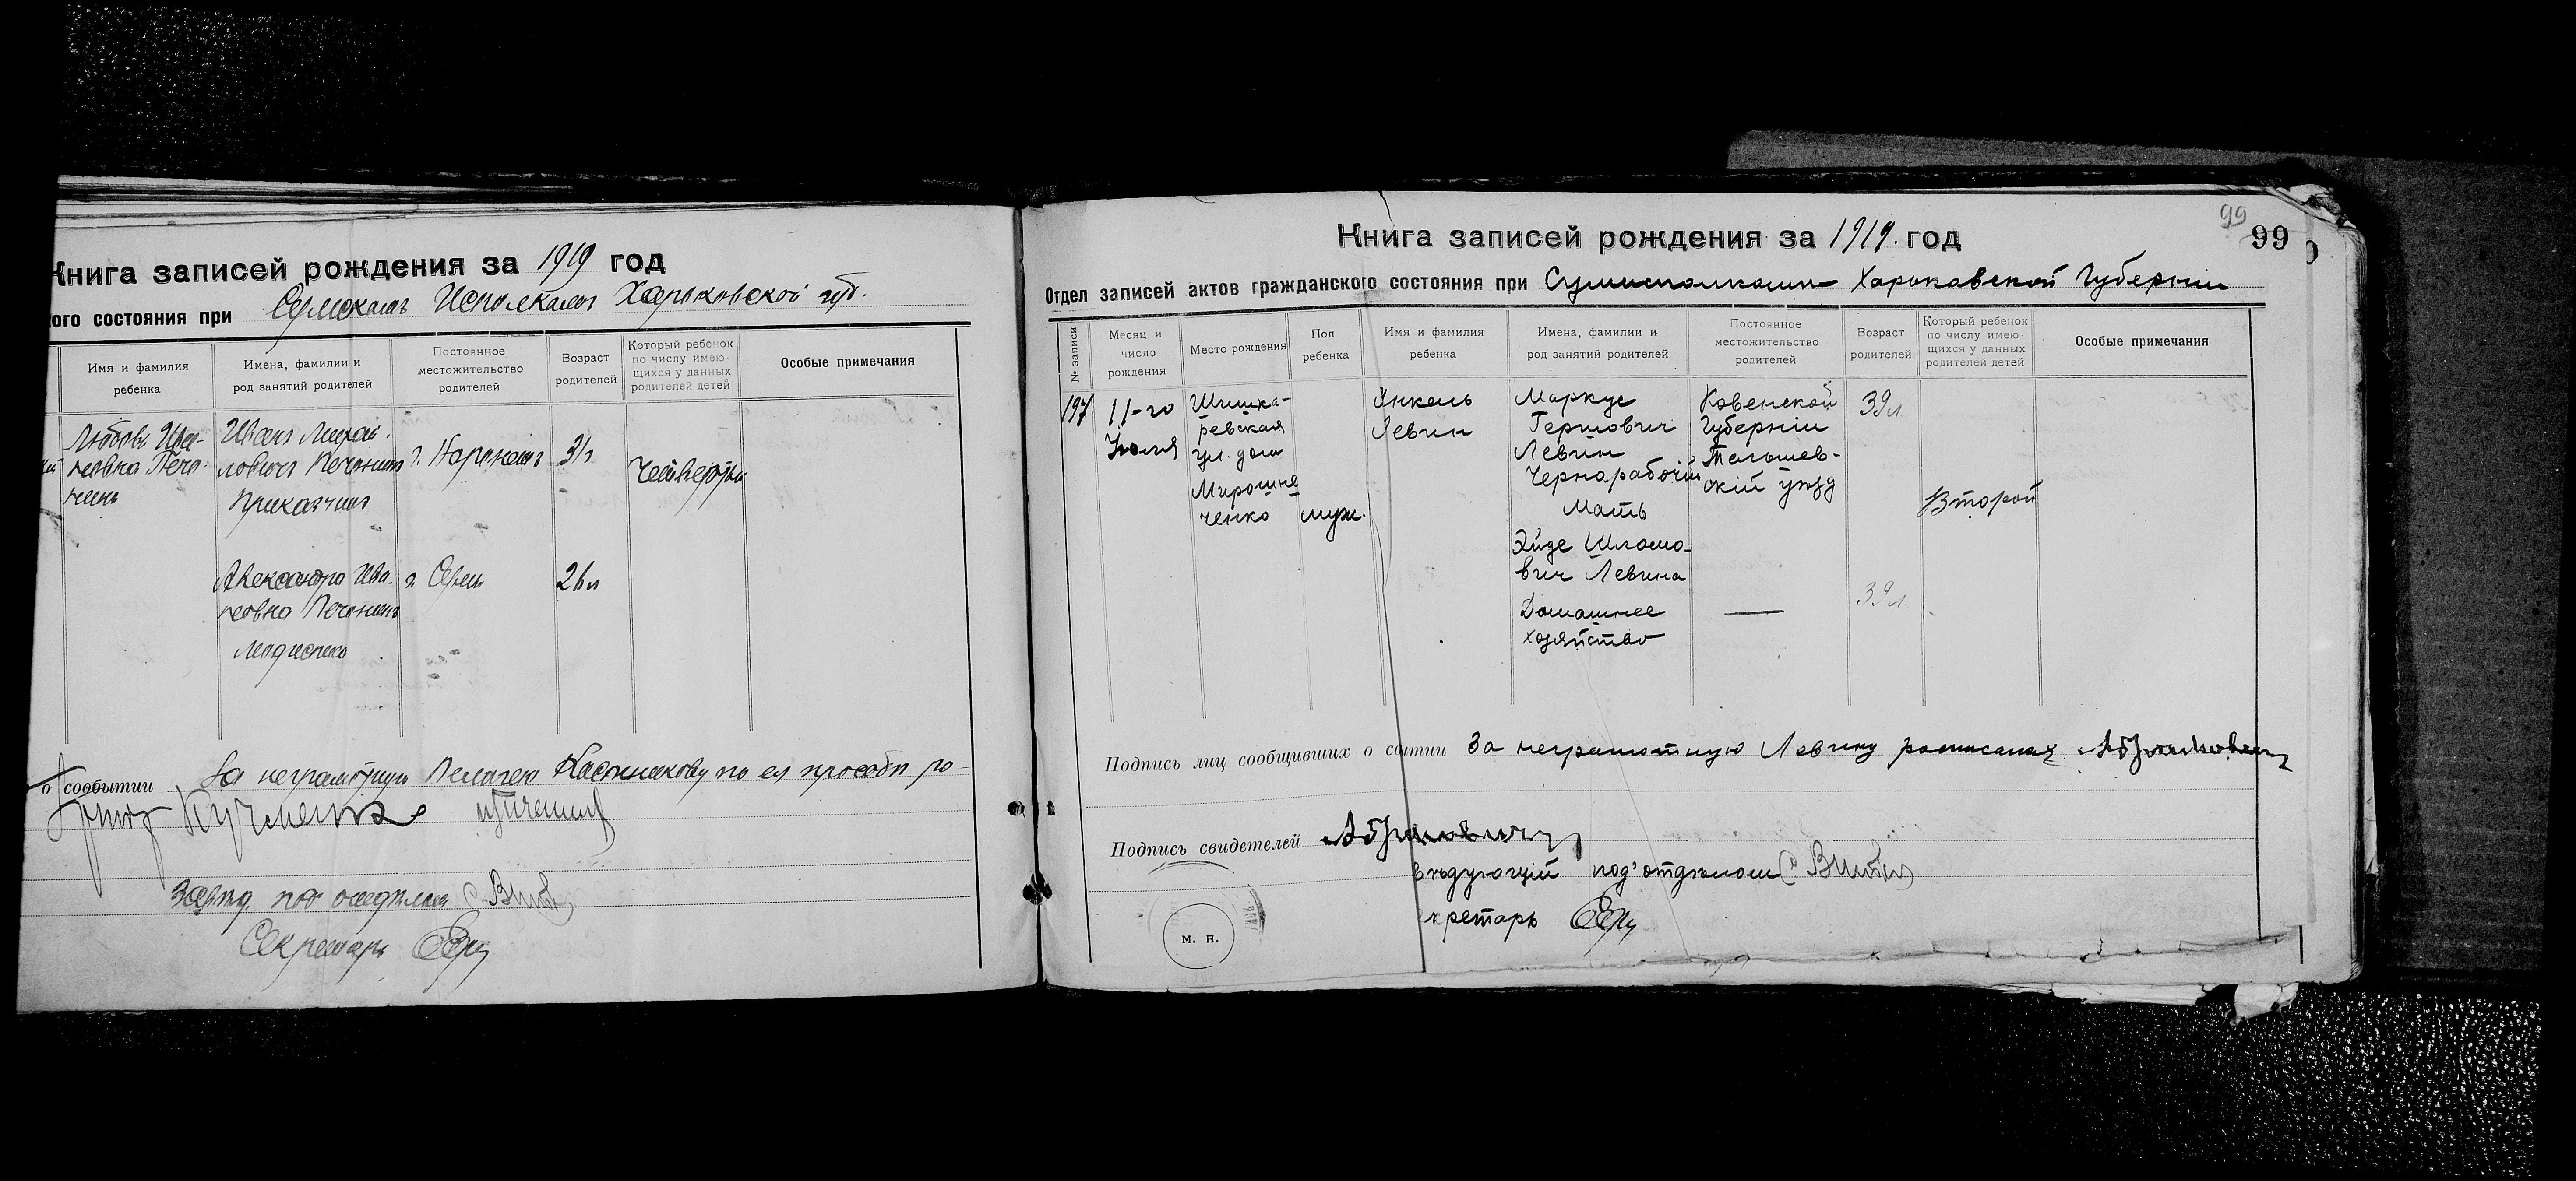 Книга записей рождения за 1919 год
ого состояния при Сумскомъ Исполкомъ Харьковской губ.
Имя и фамилия ребенка
Имена, фамилии и род занятий родителей
Постоянное местожительство родителей
Возраст родителей
Который ребенок по числу имею-щихся у данных родителей детей
Особые примечания
Любовь Ива-
новна Печо-
нинъ
Иванъ Михай-
ловичъ Печонинъ
Приказчикъ
г.
31 г
Четвертый
Александра Ива-
новна Печонинъ
Модистка
г. Сумы
26 л
о событии За неграмотную Пелагею по ея прозьби ро-
Завѣд. под отдѣломъ
Секретарь
99
Книга записей рождения за 1919. год
99
Отдел записей актов гражданского состояния при Сумисполкоми Харьковской Губернiи
№ записи
Месяц и число рождения
Место рождения
Пол ребенка
Имя и фамилия ребенка
Имена, фамилии и род занятий родителей
Постоянное местожительство родителей
Возраст родителей
Который ребенок по числу имею-щихся у данных родителей детей
Особые примечания
197
11-го
Июля
Шишка-
ревская
ул. дом
Мирошни
ченко
муж.
Янкель
Левин
Маркус
Гершович
Левин
Чернорабочiй
Мать
Хйде Шломо-
вич Левина
Домашнее
хозяйство
Ковенской
Губернiи
Тельшев-
скiй уѣзд
—
39 л.
39 л.
Второй
Подпись лиц сообщивших о сбытии За неграмотную Левину росписалах Абрамович
Подпись свидетелей Абрамович
вѣдующiй под'отдѣлом
кретарь
м. п.